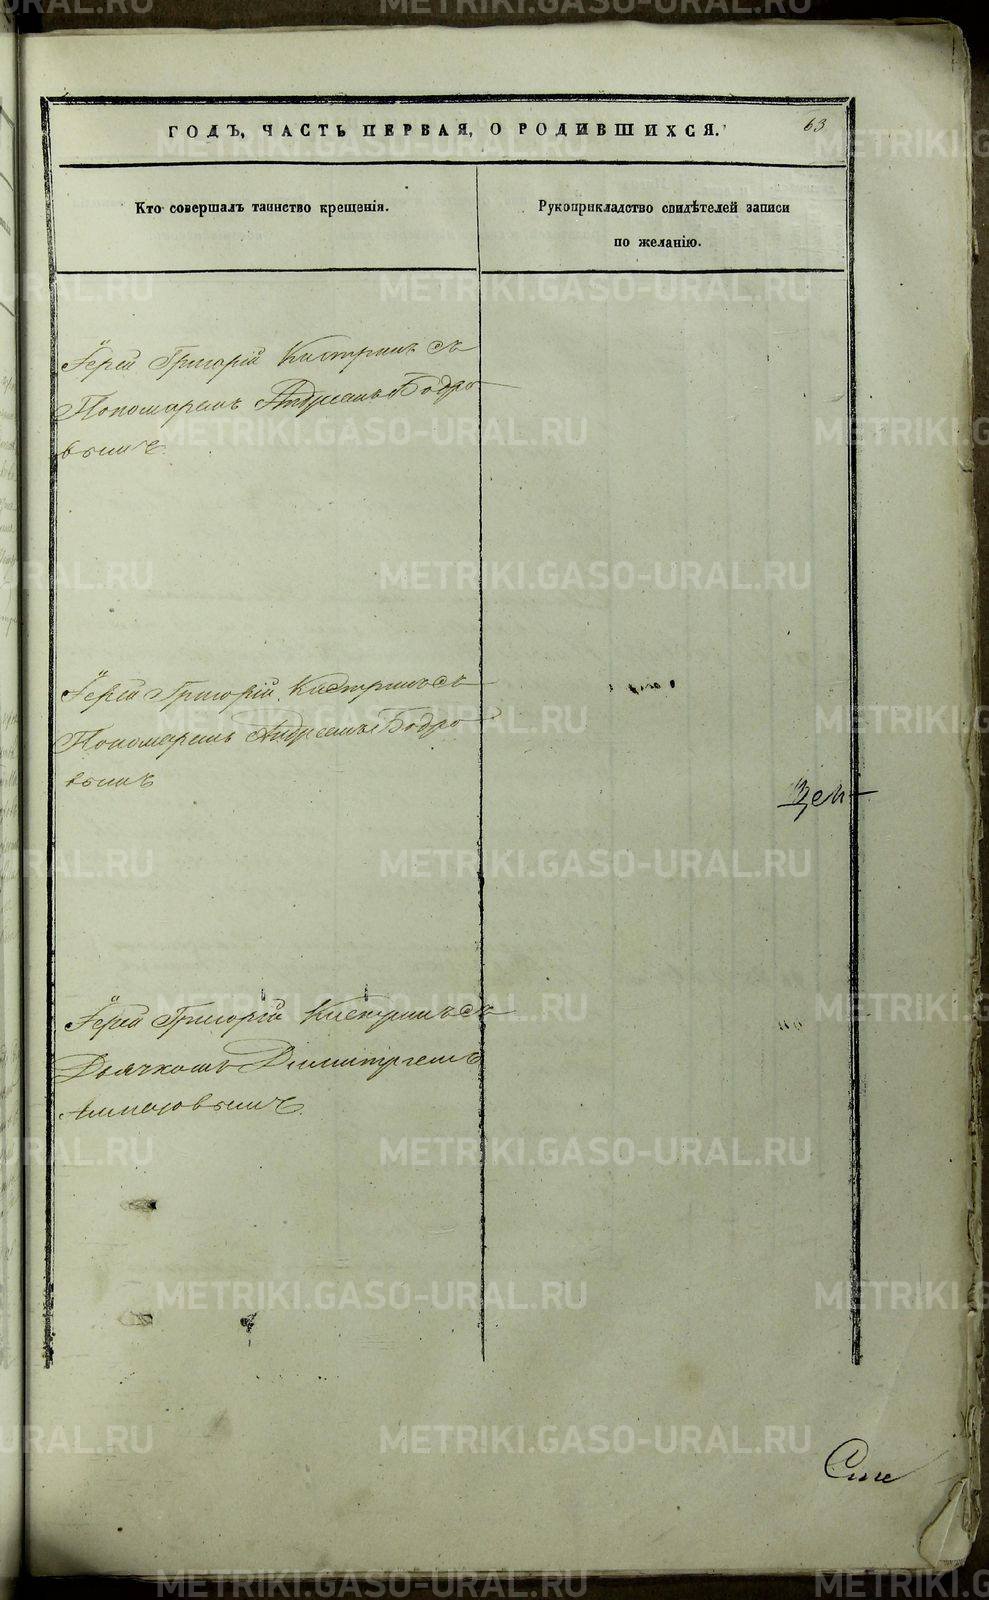 ГОДЪ, ЧАСТЬ ПЕРВАЯ, О РОДИВШИХСЯ.
63
Кто совершалъ таинство крещенія.
Рукоприкладство свидѣтелей записи
по желанію.
Іерей Григорій съ
Пономаремъ Андреемъ Бодро
вымъ
Іерей Григорій съ
Пономаремъ Андреемъ Бодро
вымъ
Іерей Григорій съ
Дьячкомъ Димитріемъ
METRIKI.GASO-URAL.RU